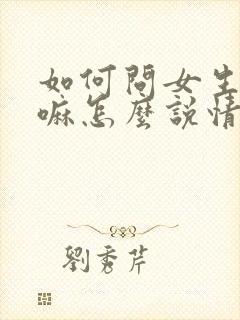 如何問女生
嘛怎麼說情
劉秀芹